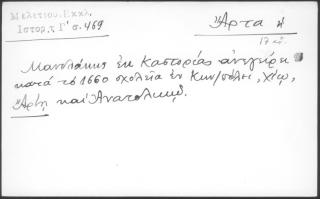 Μελετίου. Εκκλ.
Ἱστορ. τ. Γ' σ. 469
Ἄρτα
17 αἰ.
Μανολάκης ἐκ Καστορίας ἀνεγείρει
κατά τό 1660 σχολεῖα ἐν Κων/πόλει, Χίῳ,
Ἄρτῃ καί Ἀνατολικῷ.